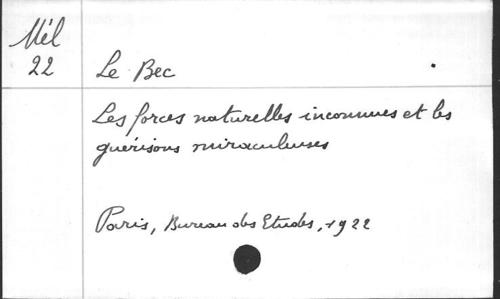 Mél
22
Le Bec
Les forces naturelles inconnues et les
guérisons miraculeuses
Paris, Bureau des Etudes, 1922